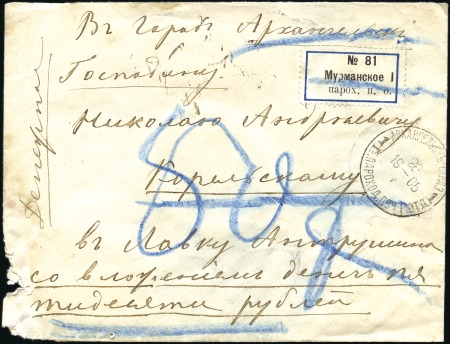 Въ Городъ Архангельскъ
№ 81
Мурманское I
парох. п. о.
Господину
Николаю Андреевичу
Корельскому
въ Лавку Антрушина
со вложеніемъ денегъ пя
тидесяти рублей
Денежное
50 р